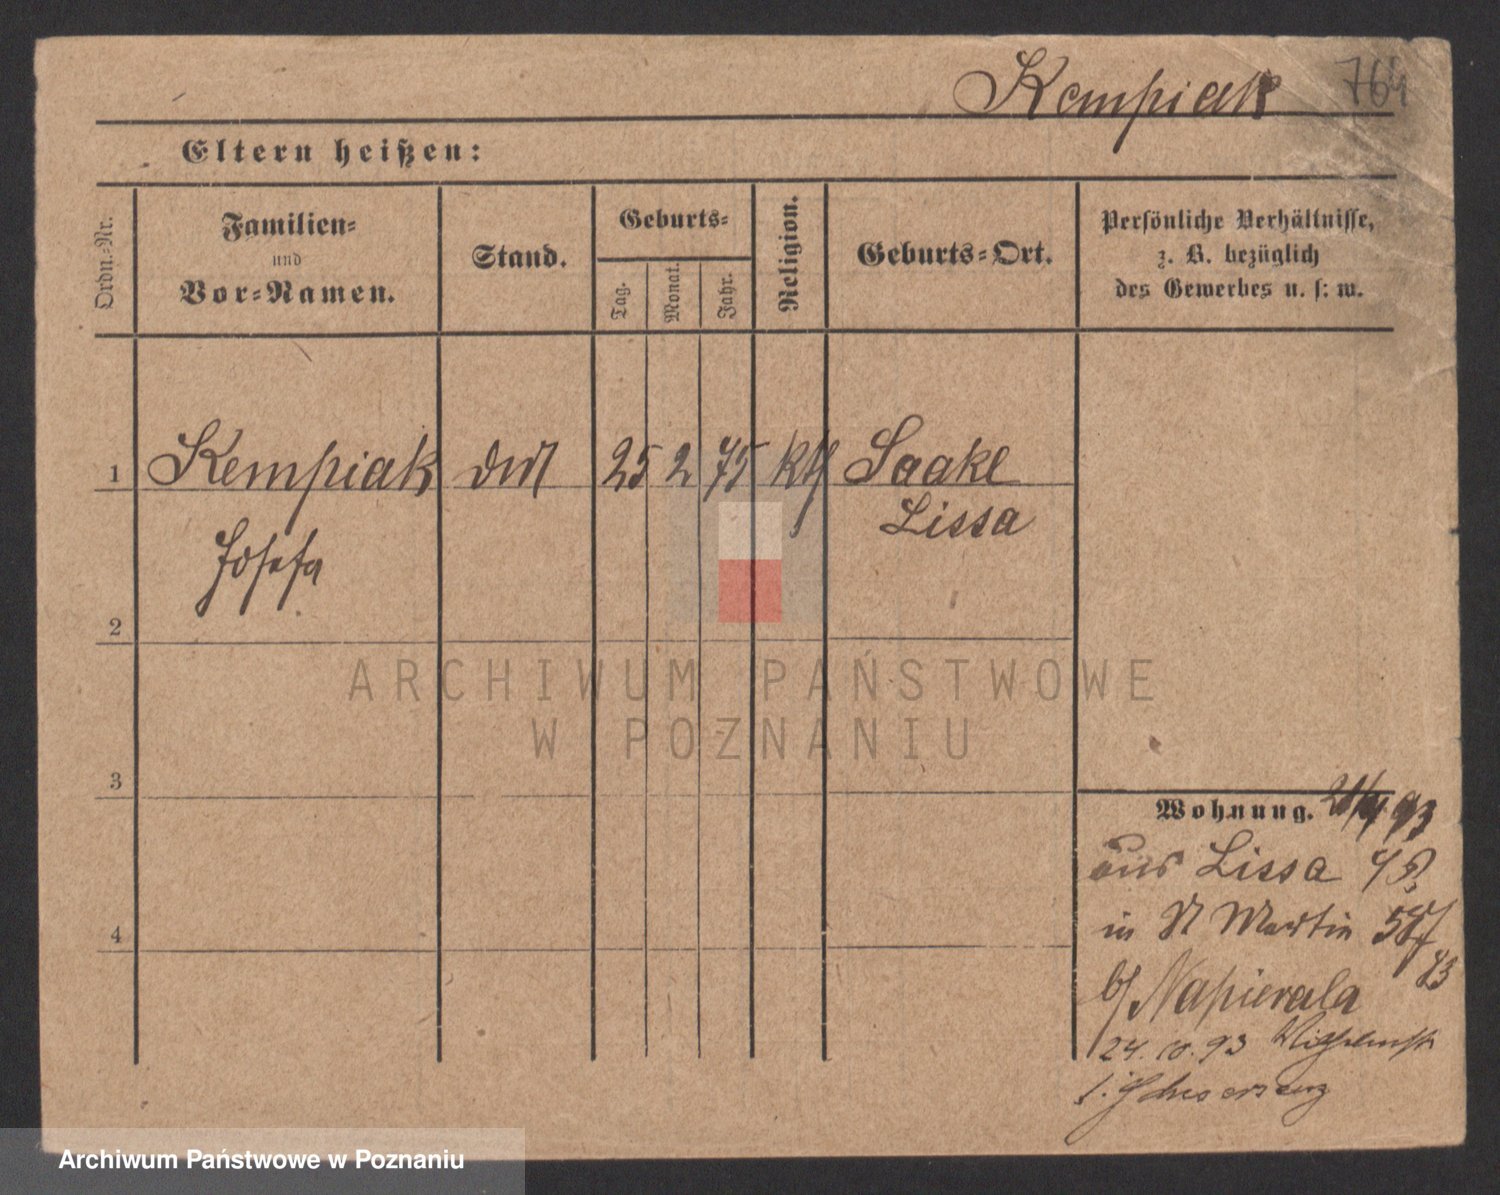 Kempiak 764
Eltern heißen:
Ordn.-Nr.
Familien-
und
Vor-Namen.
Stand.
Geburts-
Tag.
Monat.
Jahr.
Religion.
Geburts-Ort.
Persönliche Verhältnisse,
z. B. bezüglich
des Gewerbes u. s. w.
1 Kempiak 25 2 75 kth Saake
Lissa
Josefa
2
ARCHIWUM PAŃSTWOWE
W POZNANIU
3
Wohnung. 93
aus Lissa
in St Martin 58
93
b/ Napierala
24. 10. 93
4
Archiwum Państwowe w Poznaniu